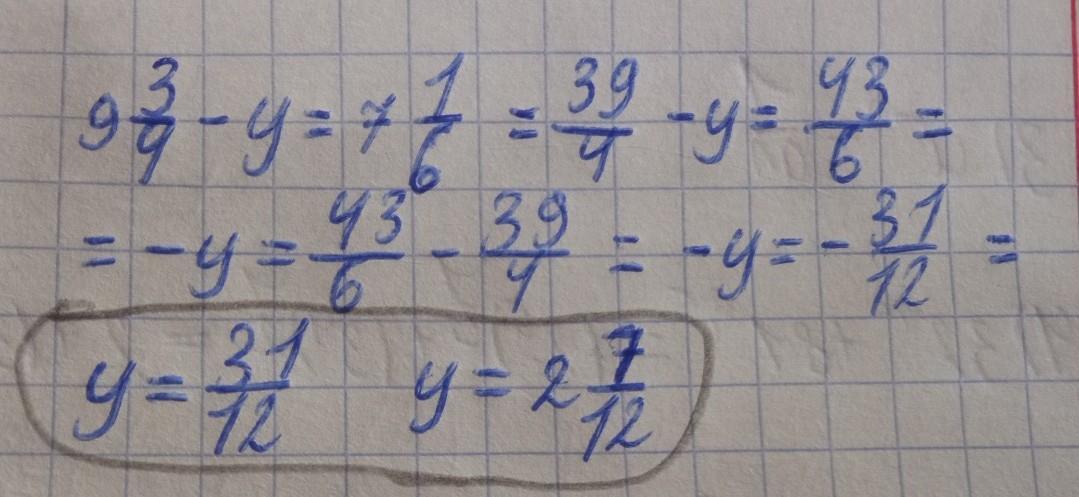 9 3/4 - y = 7 1/6 = 39/4 - y = 43/6 =
= - y = 43/6 - 39/4 = - y = - 31/12 =
y = 31/12 y = 2 7/12